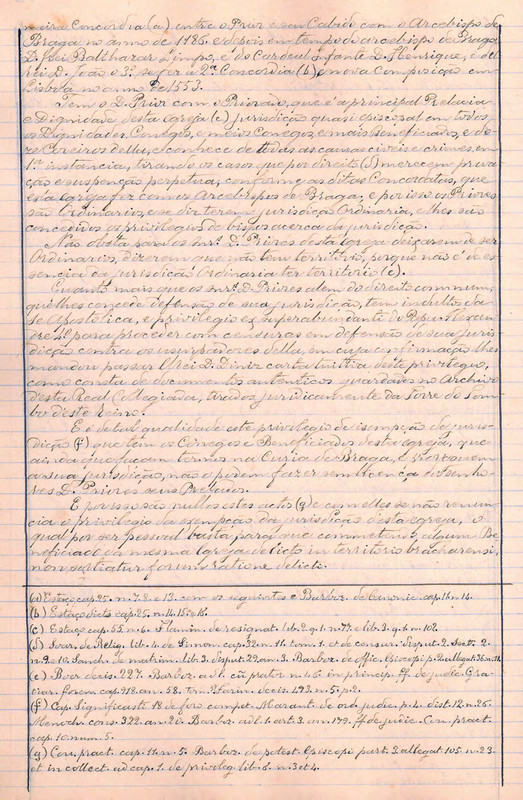 meira Concordia (a) entre o Prior e seu Cabido com o Arcebispo de
Braga no anno de 1186. e depois em tempo do arcebispo de Braga
D. Frei Balthazar Limpo, e do Cardeal Infante D. Henrique, e del
rei D. João o 3º se fez a 2ª Concordia (b), e nova composição em
Lisboa no anno de 1553.
Tem o D. Prior com o Priorado, que é a principal Prelacia
e Dignidade desta igreja (c) jurisdição quasi episcopal em todos
os Dignidades, Conegos, e meios Conegos, e mais Beneficiados, e
Coreiros della, e conhece de todas as causas civeis e crimes, em
1ª instancia, tirando os casos que por direito (d) merecem priva
ção e suspenção perpetua, conforme as ditas Concordatas, que
esta Igreja fez com os Arcebispos de Braga, e por isso os Priores
são Ordinarios, e se diz terem jurisdição Ordinaria, e lhes são
concedidos os privilegios de bispos acerca da jurisdição.
Não obsta para os mºs. D. Priores desta igreja deixarem de ser
Ordinarios, dizerem que não tem territorio, porque não é de es
sencia da jurisdição Ordinaria ter territorio (e).
Quanto mais que os mºs. D. Priores alem do direito commum,
que lhes concede defensão de sua jurisdição, tem indulto da
Sé Apostolica, e privilegio ex superabundante do Papa Alexan
dre 4º para proceder com censuras em defensão de sua juris
dição contra os usurpadores della, em cuja confirmação lhes
mandou passar el rei D. Diniz carta tuitiva deste privilegio,
como consta de documentos autenticos guardados no Archivo
desta Real Collegiada, tirados juridicamente da Torre do Tom
bo deste Reino.
E é de tal qualidade este privilegio de isempção da juris
dição (f) que tem os Conegos e Beneficiados desta igreja, que
ainda que façam termos na Curia de Braga,
a sua jurisdição, não o podem fazer sem licença dos senho
res D. Priores seus Prelados.
E por isso são nullos estes actos (g) e com elles se não renun
cia o privilegio da exempção da jurisdição desta igreja, o
qual por ser pessoal basta, para que commetendo algum Be
neficiado da mesma Igreja delicto in territorio bracharensi,
non sortiatur forum ratione delicti.
(a) Estaço cap. 25. n. 7. 8. e 13. com os seguintes e Barboz. de Canonic. cap. 16. n. 14.
(b) Estaço dicto cap. 25. n. 14. 15. e 16.
(c) Estaço cap. 55. n. 6. Flamin. de resignat. lib. 2. q. 1. n. 77. e lib. 3. q. 1. n. 102.
(d) Soar. de Relig. lib. 4. de Simon. cap. 32. n. 11. tom. 1. et de censur. disput. 2. Sect. 2.
n. 9. e 10. Sanch. de matrim. lib. 3. disput. 29. an. 3. Barboz. de offic. Episcopi p. 2. allegat 36. n. 11.
(e) Boer decis. 227. Barboz. ad l. cum prætor n. 46. in princip. ff. de judic. Gra
cian. forens. cap. 918. an. 58. tom. 2. Farin. decis. 493. n. 5. p. 2.
(f) Cap. Significasti 18. de foro compet. Marant. de ord. judic. p. 4. dist. 12. n. 26.
Menoch. cons. 322. an. 20. Barboz. ad l. 1. art. 3. an. 179. ff. de judic. Cov. pract.
cap. 10. num. 5.
(g) Cov. pract. cap. 11. n. 5. Barboz. de potest. Episcopi part. 3. allegat 105. n. 23.
et in collect. ad cap. 1. de privileg. lib. 6. n. 3. et 4.